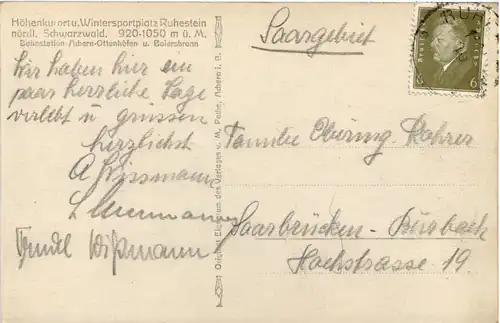 Höhenkurort u. Wintersportplatz Ruhestein
nördl. Schwarzwald. 920-1050 m ü. M.
Bahnstation Achern-Ottenhöfen u. Baiersbronn
Wir haben hier ein
paar herrliche Tage
verlebt u. grüssen
herzlichst
A Wissmann
Trudel Wißmann
Original Eigentum des Verlages v. M. Achern i. B.
Saargebiet
Familie Obering. Rohrer
Saarbrücken-Burbach
Hochstrasse 19
6 6